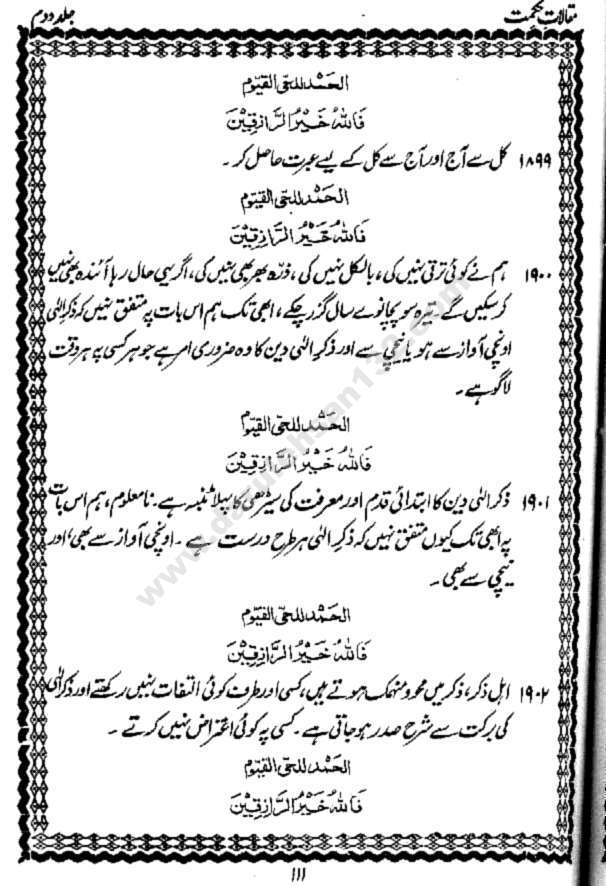 مقالات حکمت
جلد دوم
الحمد للحی القیوم
فَاللّٰہُ خَیْرُ الرَّازِقِیْنَ
۱۸۹۹ کل سے آج اور آج سے کل کے لیے عبرت حاصل کر ۔
الحمد للحی القیوم
فَاللّٰہُ خَیْرُ الرَّازِقِیْنَ
۱۹۰۰ ہم نے کوئی ترقی نہیں کی ، بالکل نہیں کی ، ذرّہ بھر بھی نہیں کی ، اگر یہی حال رہا آئندہ بھی نہیں
کر سکیں گے ۔ تیرہ سو پچانوے سال گزر چکے ، ابھی تک ہم اس بات پہ متفق نہیں کہ ذکرِ الٰہی
اونچی آواز سے ہو یا نیچی سے اور ذکرِ الٰہی دین کا وہ ضروری امر ہے جو ہر کسی پہ ہر وقت
لاگو ہے ۔
الحمد للحی القیوم
فَاللّٰہُ خَیْرُ الرَّازِقِیْنَ
۱۹۰۱ ذکرِ الٰہی دین کا ابتدائی قدم اور معرفت کی سیڑھی کا پہلا ٹنبہ ہے ۔ نامعلوم ، ہم اس بات
پہ ابھی تک کیوں متفق نہیں کہ ذکرِ الٰہی ہر طرح درست ہے ۔ اونچی آواز سے بھی ، اور
نیچی سے بھی ۔
الحمد للحی القیوم
فَاللّٰہُ خَیْرُ الرَّازِقِیْنَ
۱۹۰۲ اہل ذکر ، ذکر میں محو و منہمک ہوتے ہیں ، کسی اور طرف کوئی التفات نہیں رکھتے اور ذکرِ الٰہی
کی برکت سے شرح صدر ہو جاتی ہے ۔ کسی پہ کوئی اعتراض نہیں کرتے ۔
الحمد للحی القیوم
فَاللّٰہُ خَیْرُ الرَّازِقِیْنَ
۱۱۱